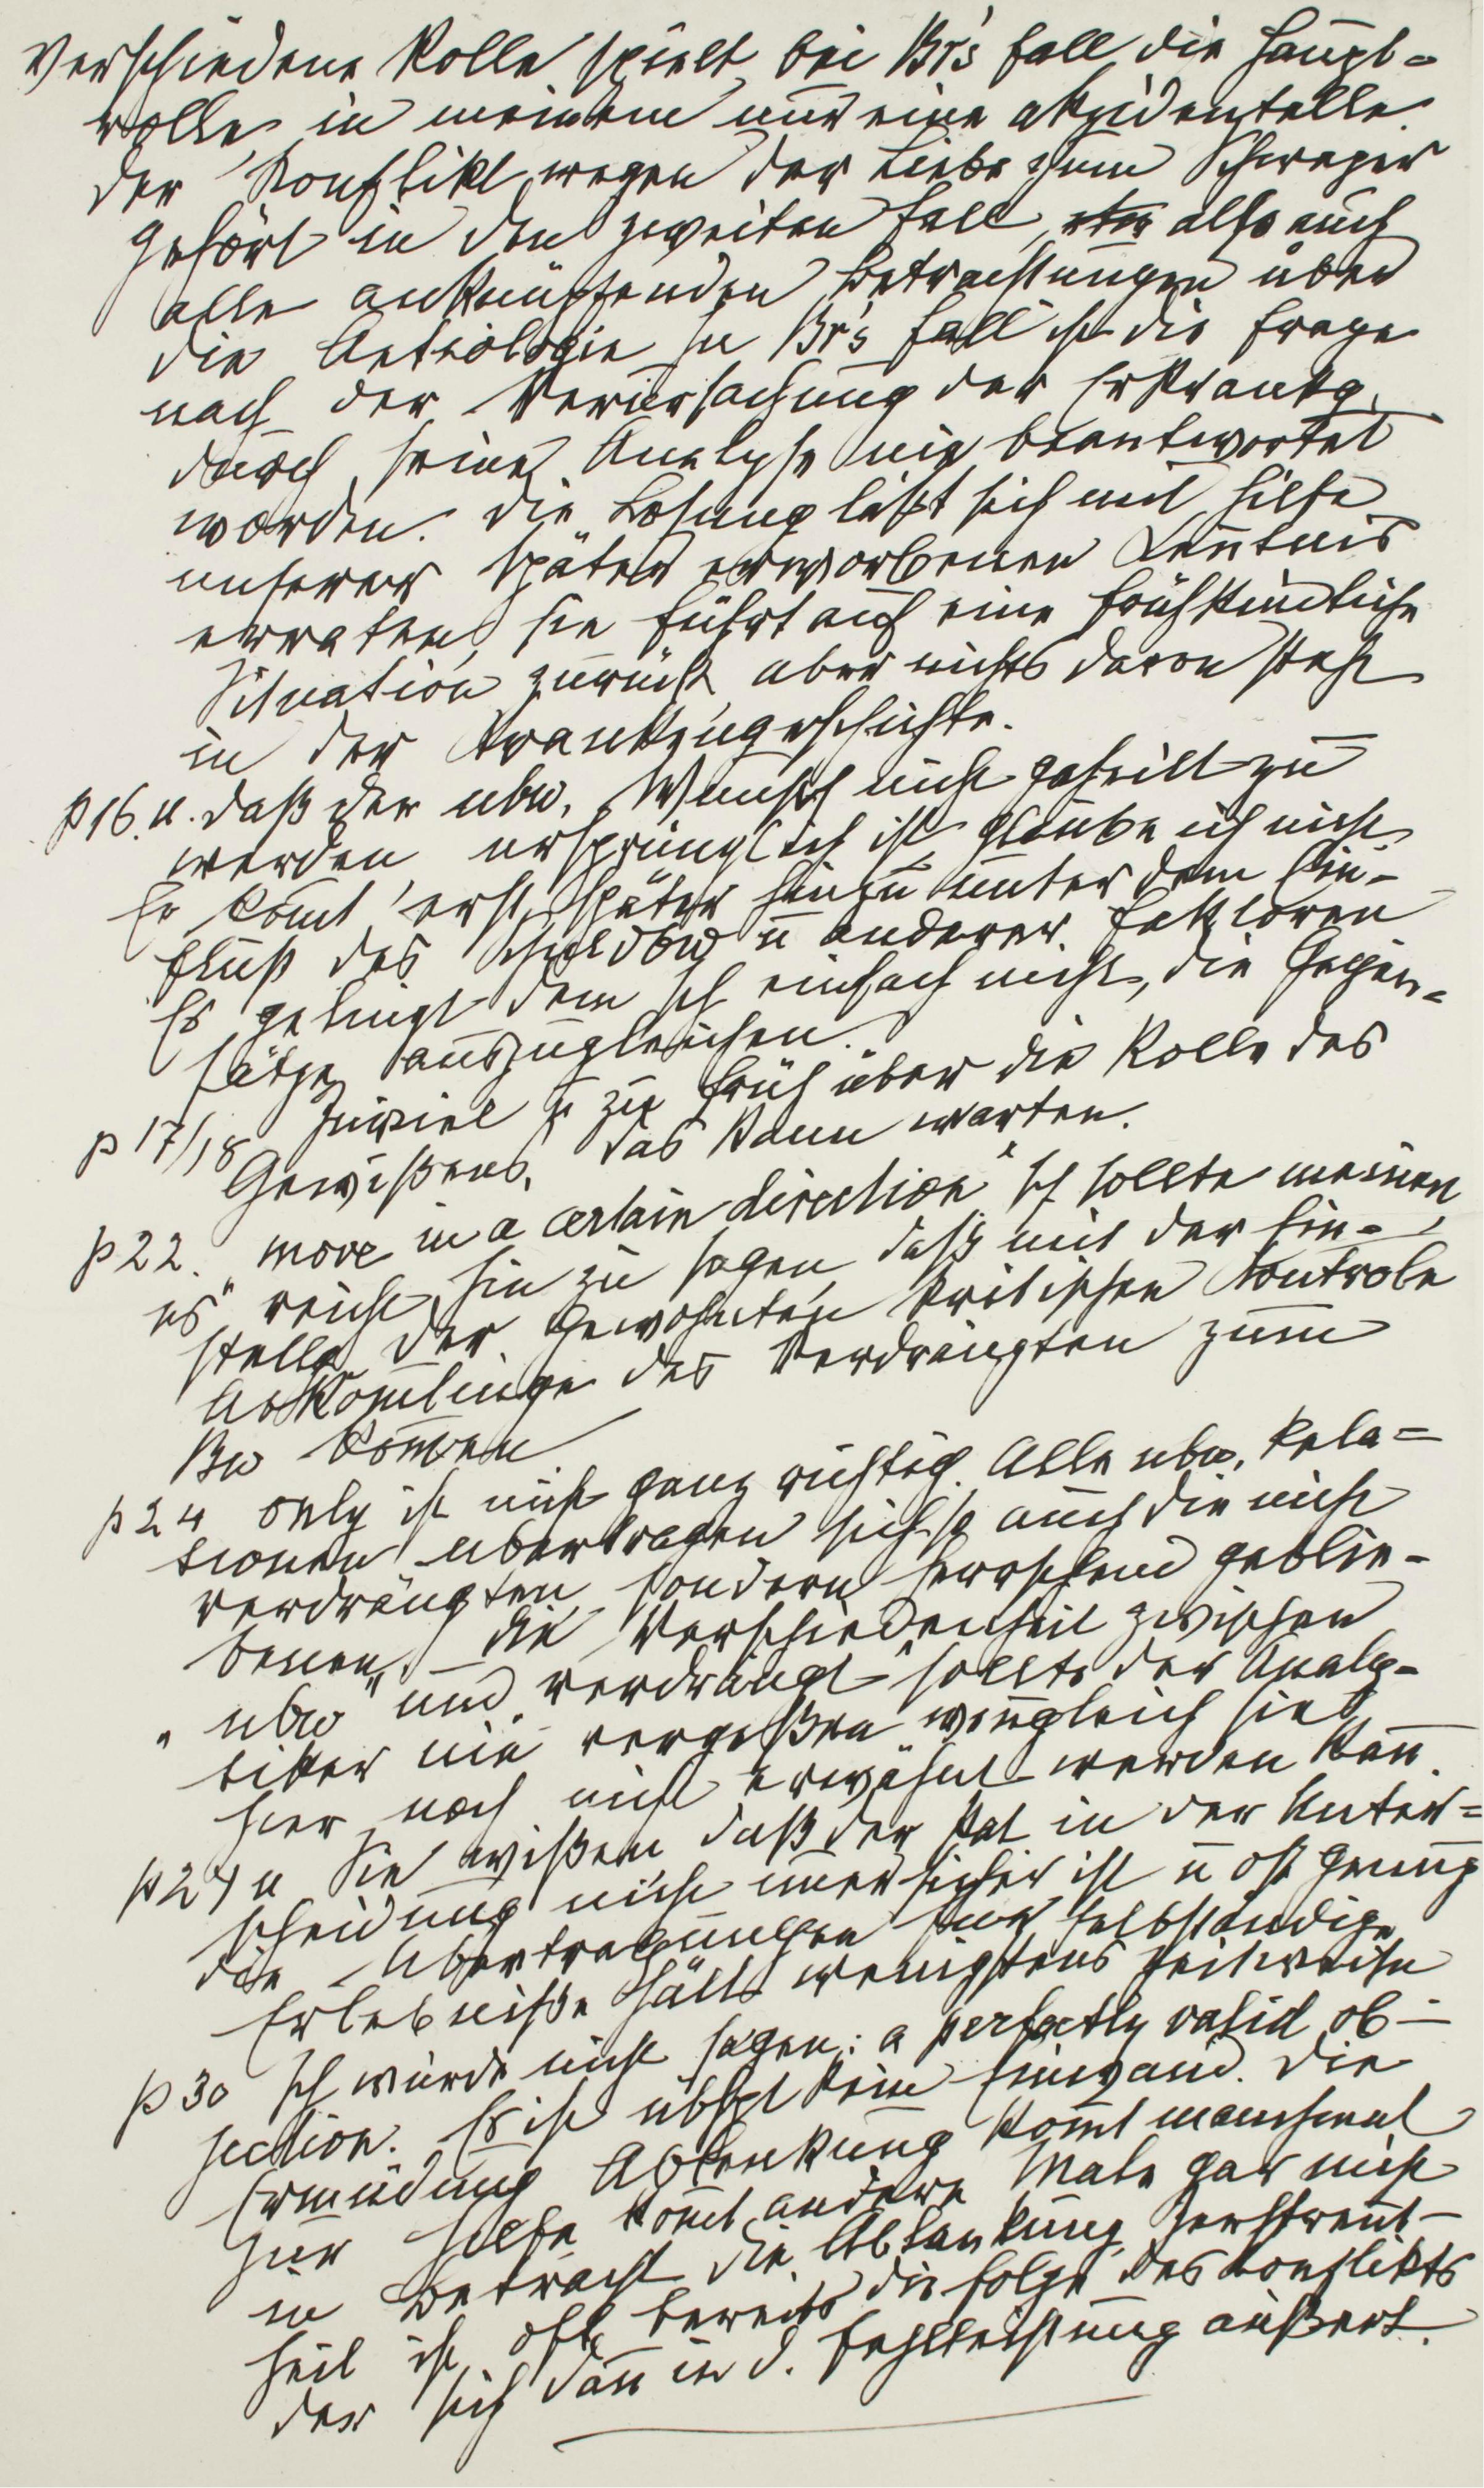 verschiedene Rolle, spielt bei Br's Fall die Haupt-
rolle, in meinem nur eine akzidentelle.
Der Konflikt wegen der Liebe zum Schwager
gehört in den zweiten Fall, also auch
alle anknüpfenden Betrachtungen über
die Aetiologie. In Br's Fall ist die Frage
nach der Verursachung der Erkrankg.
durch seine Analyse nie beantwortet
worden. Die Lösung läßt sich mit Hilfe
unserer später erworbenen Kenntnis
erraten, sie führt auf eine frühkindliche
Situation zurück, aber nichts davon steht
in der Krankengeschichte.
p 16. u. daß der ubw. Wunsch nicht geheilt zu
werden ursprünglich ist, glaube ich nicht.
Er kom̄t erst später hinzu unter dem Ein-
fluß des Schuldbw ū anderer Faktoren
Es gelingt dem Ich einfach nicht, die Gegen-
sätze auszugleichen.
p 17/18 zuviel ū zu früh über die Rolle des
Gewißens, das kann warten.
p 22. "move in a certain direction" Ich sollte meinen,
es reicht hin zu sagen, daß mit der Ein-
stellg der gewohnten kritischen Kontrole
Abköm̄linge des Verdrängten zum
Bw kom̄en
p 24 only ist nicht ganz richtig. Alle ubw. Rela-
tionen übertragen sich so auch die nicht
verdrängten sondern herrschend geblie-
benen. – Die Verschiedenheit zwischen
"ubw" und "verdrängt" sollte der Analy-
tiker nie vergeßen wen̄gleich sie
hier noch nicht erwähnt werden kan̄.
p 27 u Sie wißen daß der Pat in der Unter-
scheidung nicht im̄er sicher ist ū oft genug
die Übertragungen für selbständige
Erlebniße hält wenigstens zeitweise
p 30 Ich würde nicht sagen: a perfectly valid ob-
jection. Es ist übhpt kein Einwand. Die
Ermüdung Ablenkung kom̄t manchmal
zur Hilfe kom̄t andere Male gar nicht
in Betracht die Ablenkung, Zerstreut-
heit ist oft bereits die Folge des Konflikts
der sich dan̄ in d. Fehlleistung äußert.